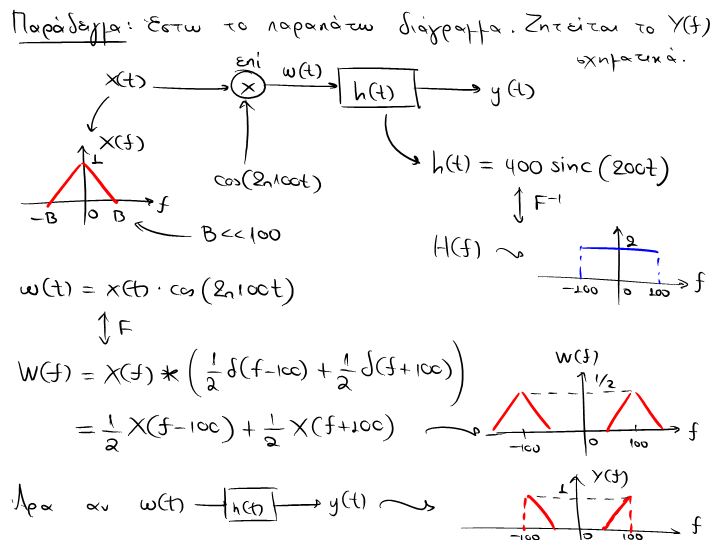 Παράδειγμα: Έστω το παρακάτω διάγραμμα. Ζητείται το Y(f)
σχηματικά.
επί
x(t)
x
w(t)
h(t)
y(t)
X(f)
1
cos(2π100t)
-B 0 B f
B<<100
h(t) = 400 sinc(200t)
F⁻¹
H(f)
2
-100 0 100 f
w(t) = x(t) · cos(2π100t)
F
W(f) = X(f) * (1/2 δ(f-100) + 1/2 δ(f+100))
= 1/2 X(f-100) + 1/2 X(f+100)
W(f)
1/2
-100 0 100 f
Άρα αν w(t) h(t) y(t)
Y(f)
1
-100 0 100 f